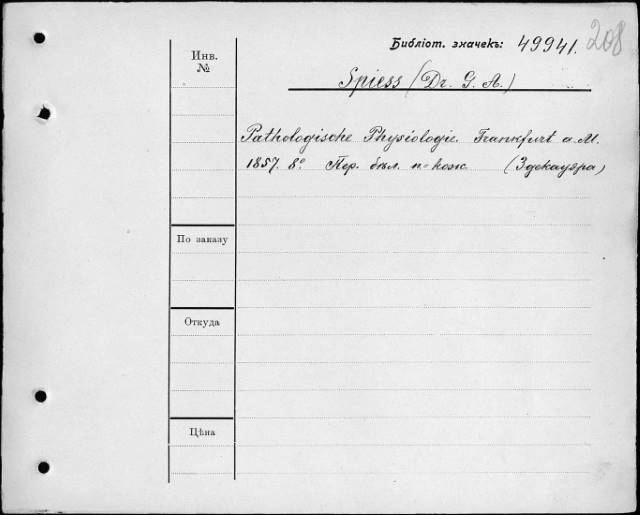 Библіот. значекъ: 49941. 208
Инв. №
Spiess (Dr. G. A.)
Pathologische Physiologie. Frankfurt a. M.
1857. 8° Пер. бѣл. п-кож. (3 декауэра)
По заказу
Откуда
Цѣна